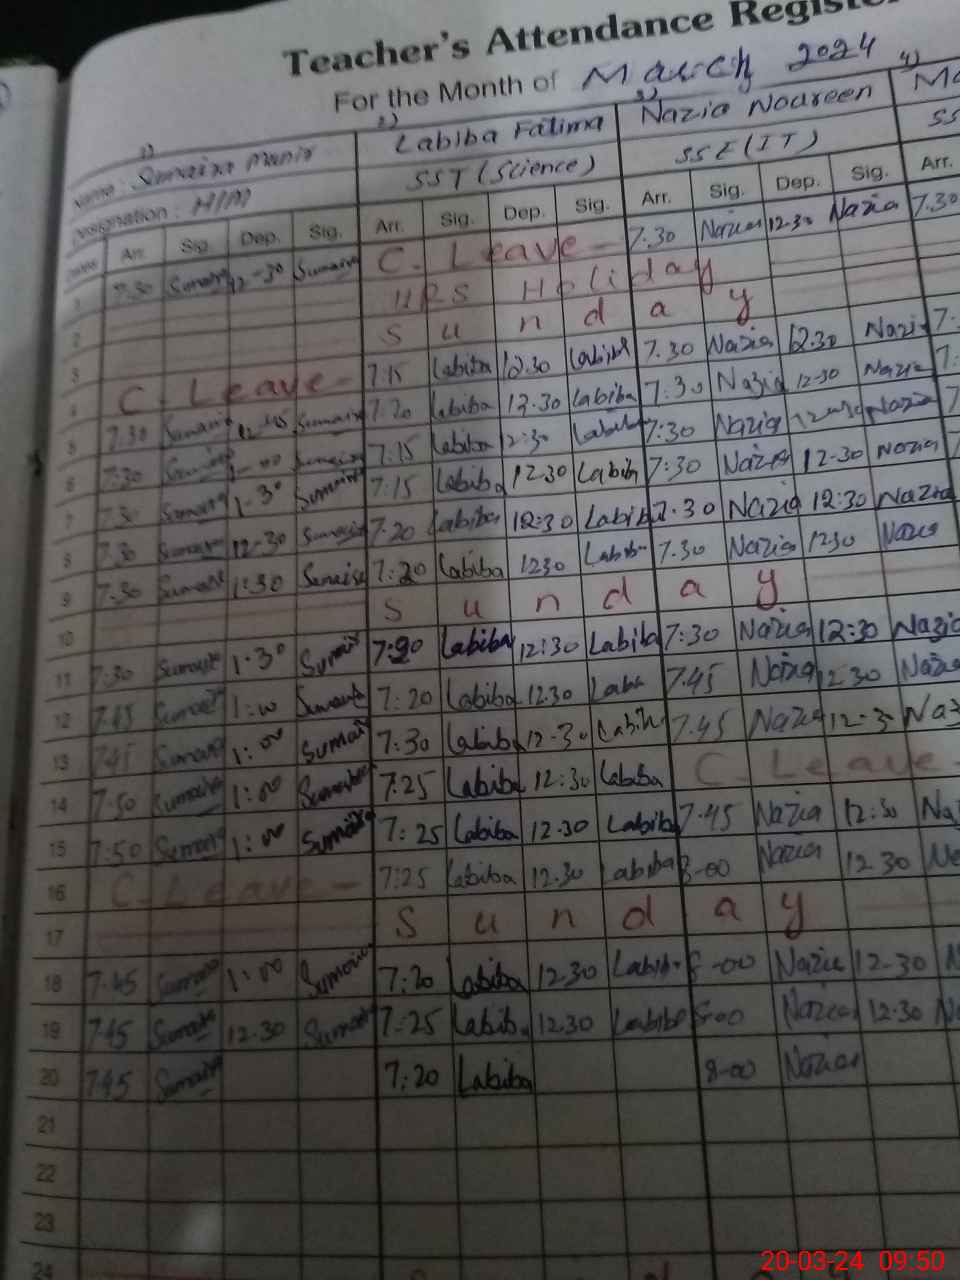 Teacher's Attendance Register
For the Month of March 2024
1) 2) 3) 4)
Name: Sumaira Munir Labiba Fatima Nazia Noureen
Designation: H/M SST (Science) SSE (IT) SS
Dates Arr. Sig. Dep. Sig. Arr. Sig. Dep. Sig. Arr. Sig. Dep. Sig. Arr.
1 7:30 Sumaira 12-30 Sumaira C. Leave - 7.30 Nazia 12.30 Nazia 7.30
2 URS Holiday
3 Sunday
4 C. Leave - 7.15 Labiba 12.30 Labiba 7.30 Nazia 12.30 Nazia 7.
5 7:30 Sumaira 12-45 Sumaira 7.20 Labiba 12.30 Labiba 7:30 Nazia 12-30 Nazia 7:
6 7:30 Sumaira 1-00 Sumaira 7:15 Labiba 12:30 Labiba 7:30 Nazia Nazia 7
7 7:30 Sumaira 1-30 Sumaira 7:15 Labiba 12.30 Labiba 7:30 Nazia 12-30 Nazia
8 7.30 Sumaira 12-30 Sumaira 7.20 Labiba 12:30 Labiba 7.30 Nazia 12:30 Nazia
9 7:30 Sumaira 1:30 Sumaira 7:20 Labiba 1230 Labib 7.30 Nazia 1230 Nazia
10 Sunday
11 7:30 Sumaira 1.30 Sumaira 7:20 Labiba 12:30 Labiba 7:30 Nazia 12:30 Nazia
12 7.45 Sumaira Sumaira 7:20 Labiba 12.30 Laba 7.45 Nazia 12.30 Nazia
13 7.45 Sumaira 1:00 Sumaira 7:30 Labiba 12-30 Labiba 7.45 Nazia 12-3 Naz
14 7:50 Sumaira 1:00 Sumaira 7:25 Labiba 12:30 Labiba C. Leave -
15 7:50 Sumaira 1:00 Sumaira 7:25 Labiba 12.30 Labiba 7.45 Nazia 12:30 Na
16 C. Leave - 7:25 Labiba 12.30 Labiba 8-00 Nazia 12.30
17 Sunday
18 7.45 Sumaira 1:00 Sumaira 7:20 Labiba 12.30 Labib 8-00 Nazia 12-30 N
19 7.45 Sumaira 12.30 Sumaira 7:25 Labiba 12.30 Labiba 8-00 Nazia 12.30
20 7.45 Sumaira 7:20 Labiba 8-00 Nazia
21
22
23
24
20-03-24 09:50